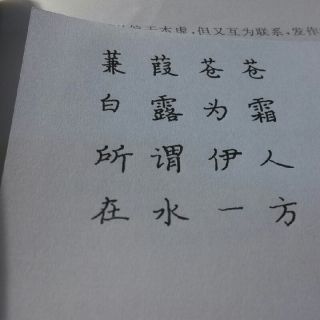 本虚,但又互为联系,发作
蒹葭苍苍
白露为霜
所谓伊人
在水一方